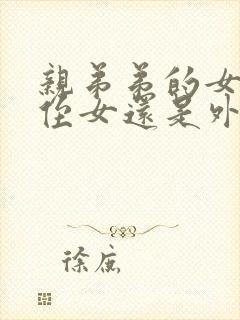 親弟弟的女
侄女還是外
徐庶